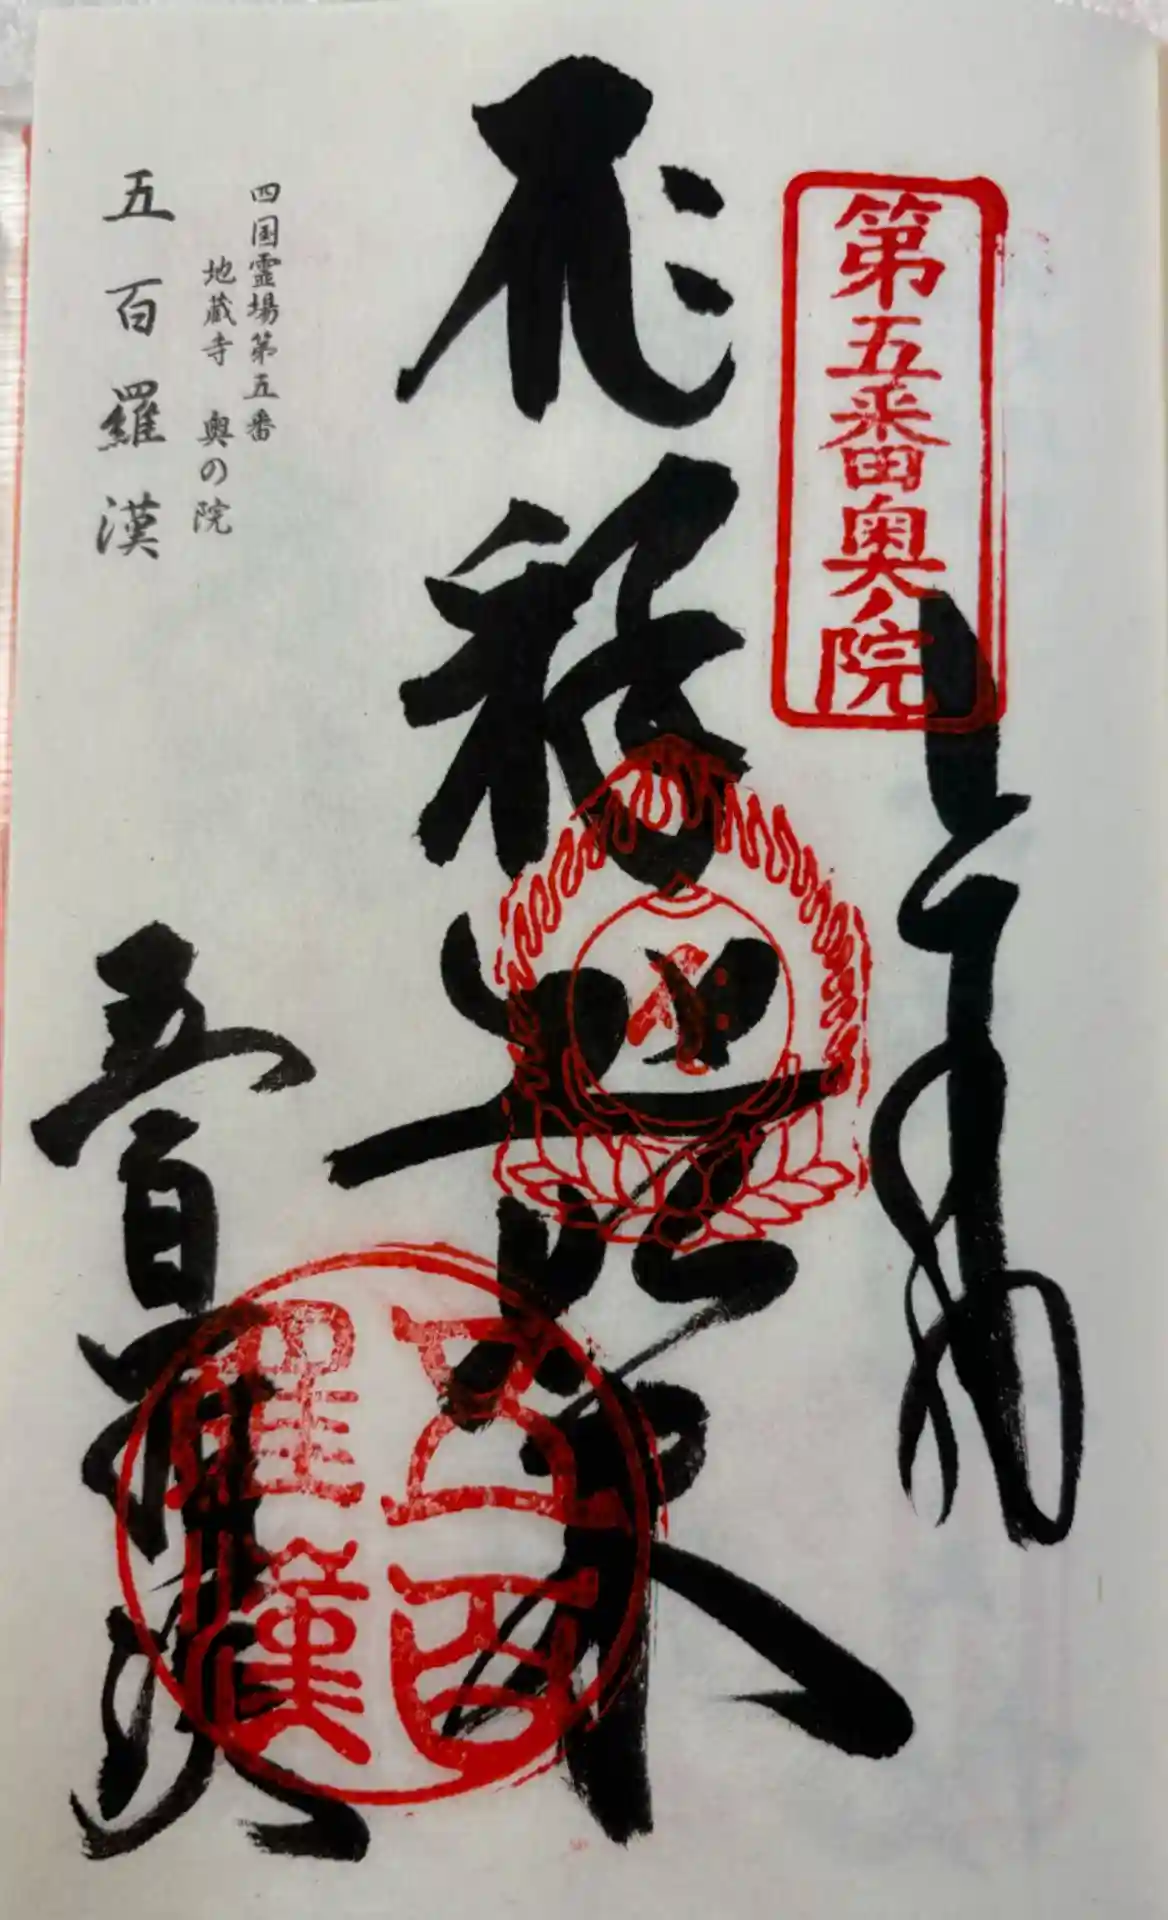 第五番奥ノ院
奉拝
釈迦如来
五百
羅漢
四国霊場第五番
地蔵寺 奥の院
五百羅漢
五百羅漢